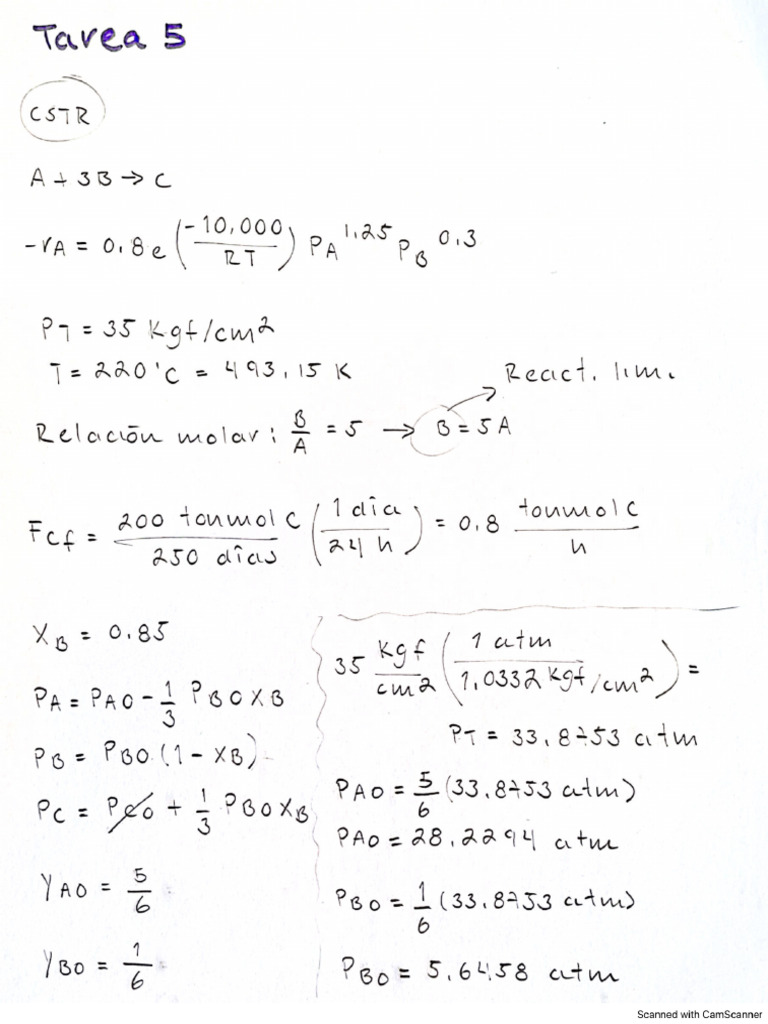 Tarea 5
CSTR
A + 3B → C
-rA = 0.8 e (-10,000 / RT) PA^1.25 PB^0.3
PT = 35 Kgf/cm2
T = 220°C = 493.15 K
React. lim.
Relación molar: B/A = 5 → B = 5A
FCf = 200 tonmol C / 250 días (1 día / 24 h) = 0.8 tonmol C / h
XB = 0.85
PA = PA0 - 1/3 PB0 XB
PB = PB0 (1 - XB)
PC = PC0 + 1/3 PB0 XB
YA0 = 5/6
YB0 = 1/6
35 Kgf/cm2 (1 atm / 1.0332 Kgf/cm2) =
PT = 33.8753 atm
PA0 = 5/6 (33.8753 atm)
PA0 = 28.2294 atm
PB0 = 1/6 (33.8753 atm)
PB0 = 5.6458 atm
Scanned with CamScanner